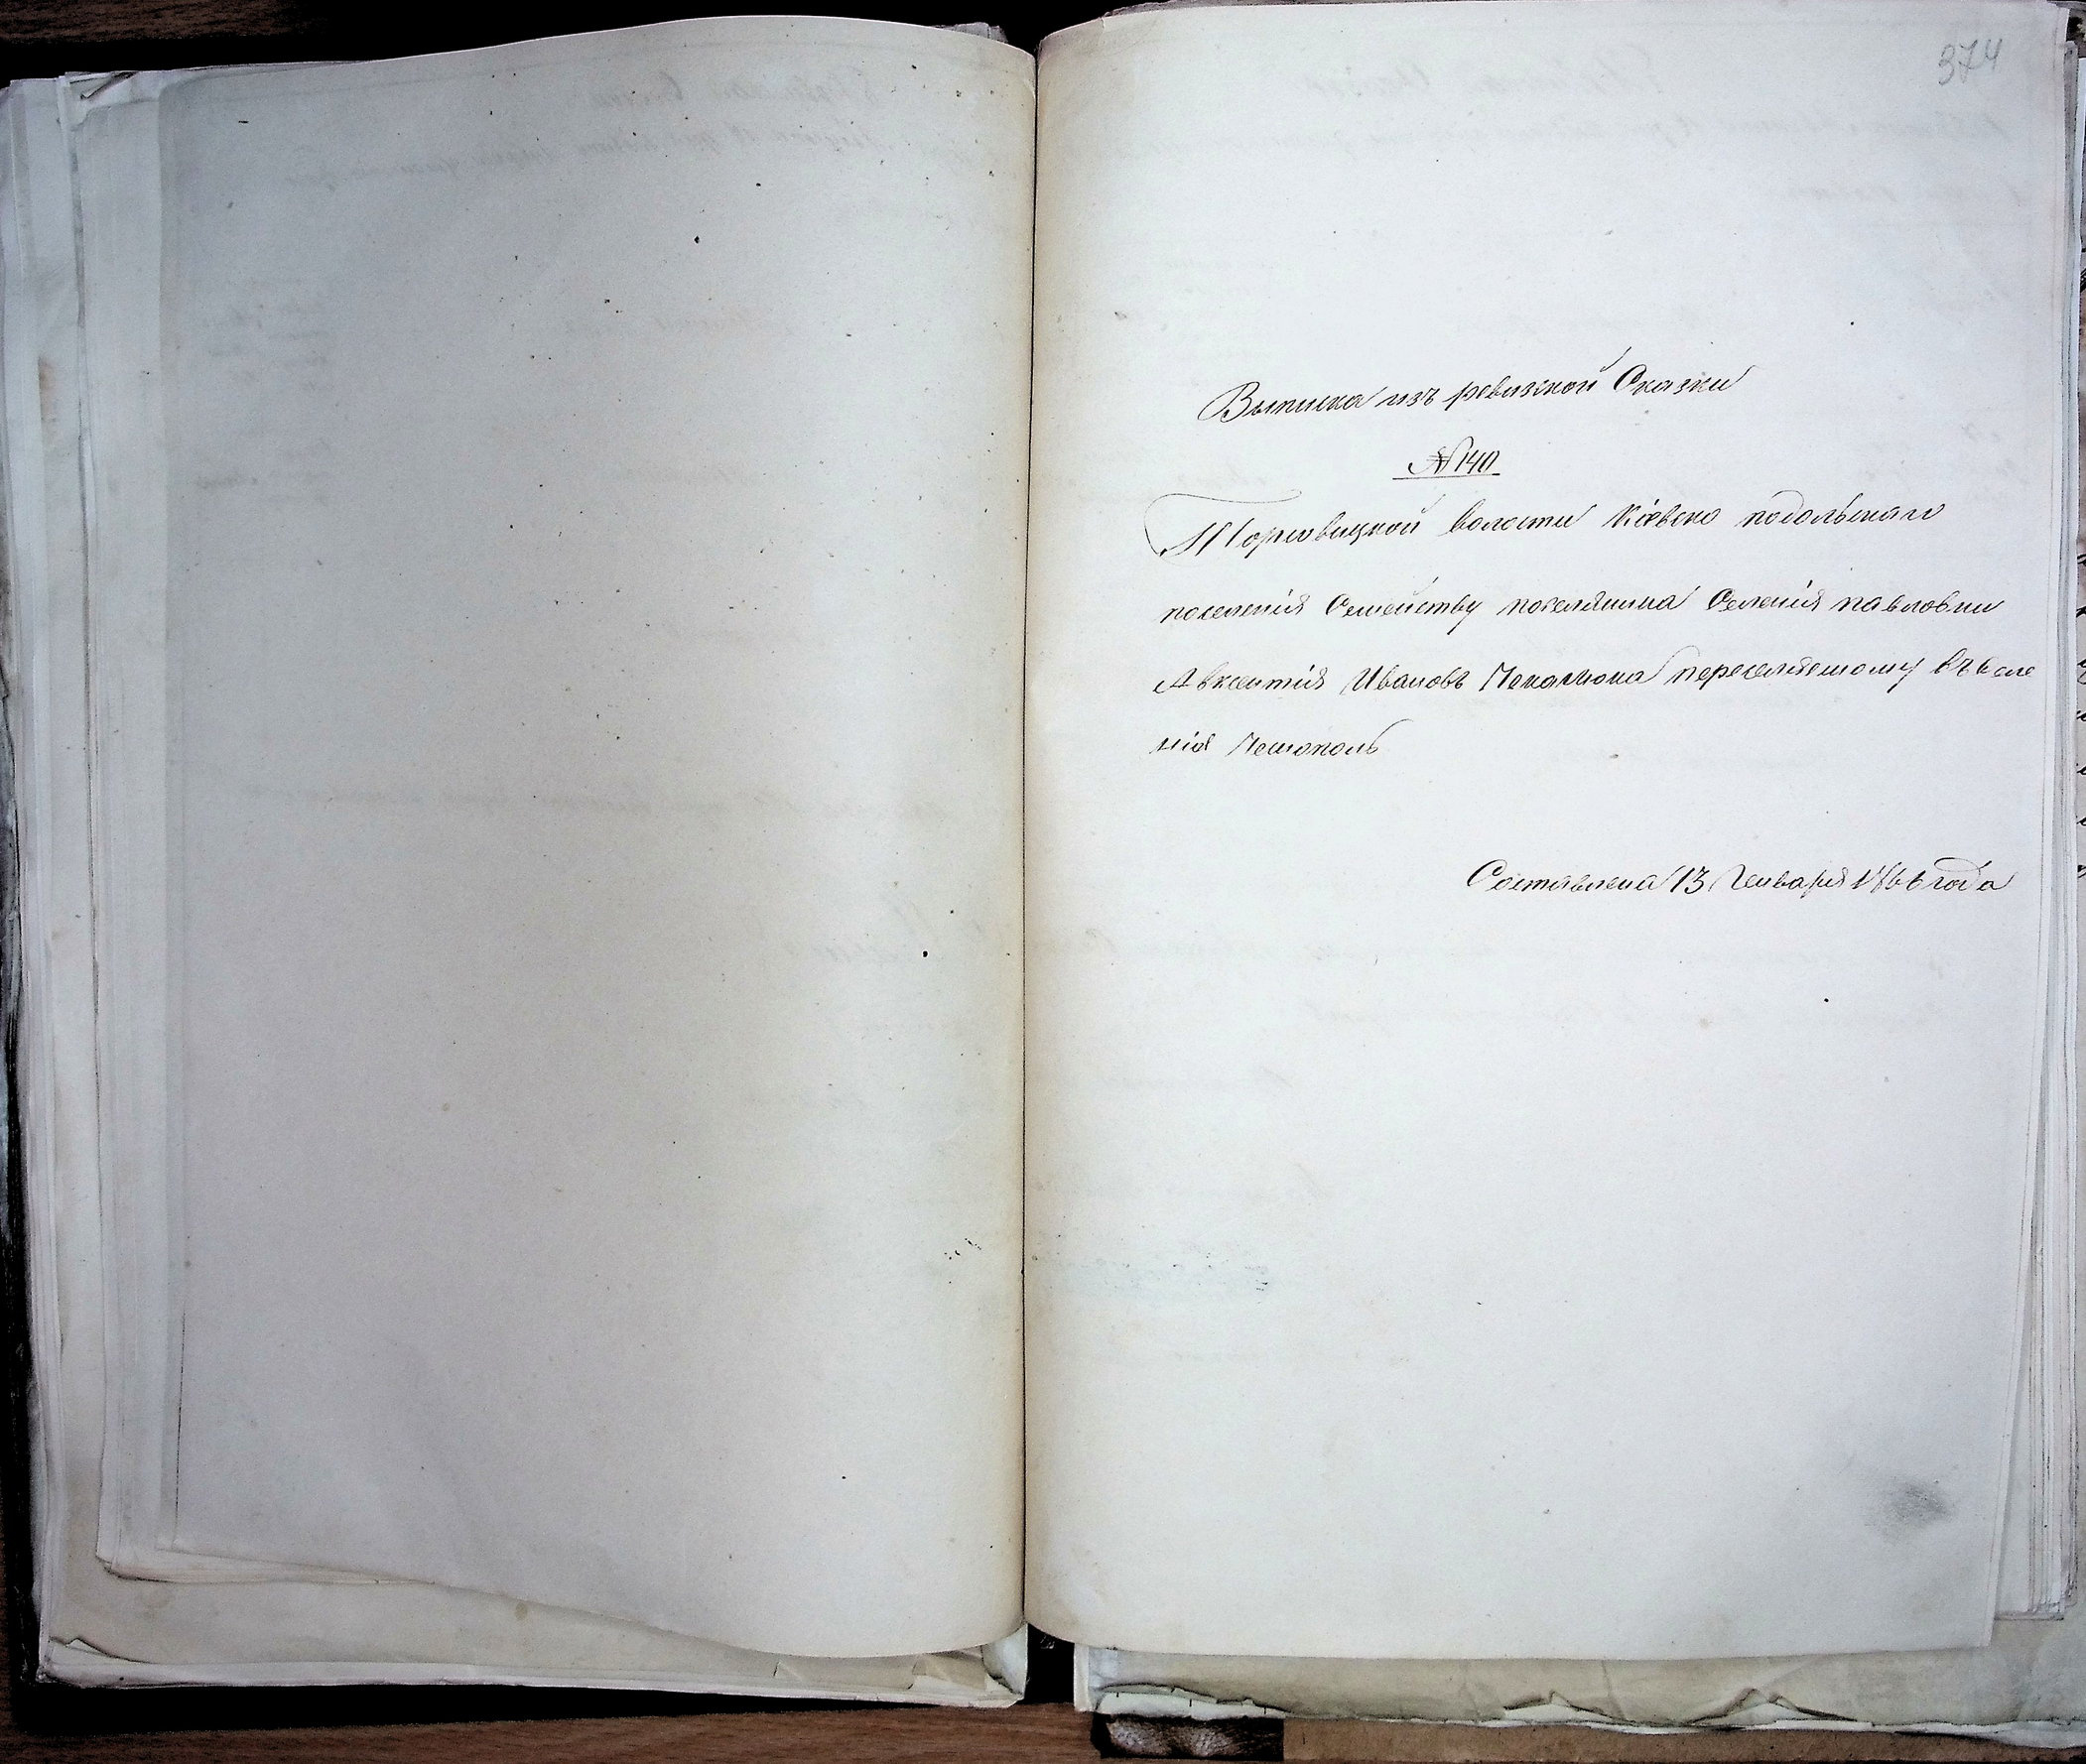 374
Выписка изъ ревизской Сказки
№ 140
Торговицкой волости Кіевско подольскаго
поселенія Семейству поселянина Селенія павловки
Авксентія Иванова переселяемому въ селе
нія
Составлена 13 Генваря 1866 года